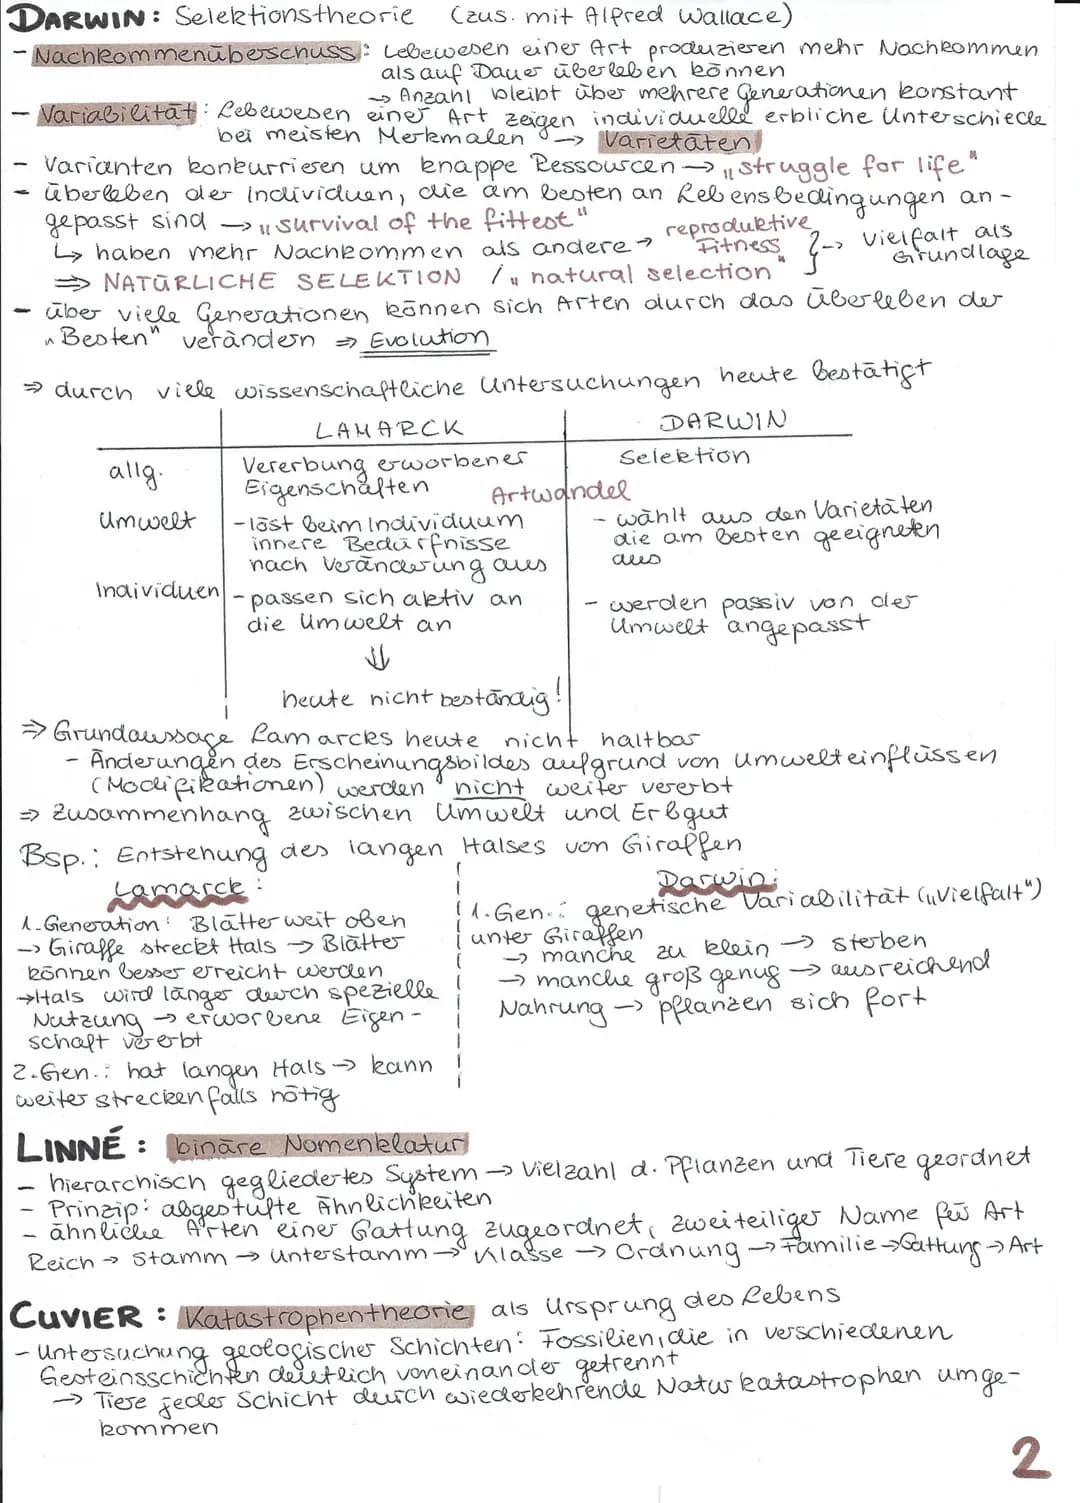 DARWIN: Selektionstheorie (zus. mit Alfred Wallace)
- Nachkommenüberschuss: Lebewesen einer Art produzieren mehr Nachkommen
als auf Dauer überleben können
→ Anzahl bleibt über mehrere Generationen konstant
- Variabilität: Lebewesen einer Art zeigen individuelle erbliche Unterschiede
bei meisten Merkmalen → Varietäten
- Varianten konkurrieren um knappe Ressourcen → „struggle for life"
- überleben der Individuen, die am besten an Lebensbedingungen an-
gepasst sind → „survival of the fittest"
↳ haben mehr Nachkommen als andere → reproduktive Fitness } → Vielfalt als Grundlage
⇒ NATÜRLICHE SELEKTION / „natural selection"
- über viele Generationen können sich Arten durch das Überleben der
„Besten" verändern ⇒ Evolution
⇒ durch viele wissenschaftliche Untersuchungen heute bestätigt
LAMARCK DARWIN
allg. Vererbung erworbener Eigenschaften Selektion
Artwandel
Umwelt - löst beim Individuum - wählt aus den Varietäten
innere Bedürfnisse die am besten geeigneten
nach Veränderung aus aus
Individuen - passen sich aktiv an - werden passiv von der
die Umwelt an Umwelt angepasst
⇓
heute nicht beständig!
⇒ Grundaussage Lamarcks heute nicht haltbar
- Änderungen des Erscheinungsbildes aufgrund von Umwelteinflüssen
(Modifikationen) werden nicht weiter vererbt
⇒ Zusammenhang zwischen Umwelt und Erbgut
Bsp.: Entstehung des langen Halses von Giraffen
Lamarck:
1. Generation: Blätter weit oben
→ Giraffe streckt Hals → Blätter
können besser erreicht werden
→ Hals wird länger durch spezielle
Nutzung → erworbene Eigen-
schaft vererbt
2. Gen.: hat langen Hals → kann
weiter strecken falls nötig
Darwin:
1. Gen.: genetische Variabilität („Vielfalt")
unter Giraffen
→ manche zu klein → sterben
→ manche groß genug → ausreichend
Nahrung → pflanzen sich fort
LINNÉ: binäre Nomenklatur
- hierarchisch gegliedertes System → Vielzahl d. Pflanzen und Tiere geordnet
- Prinzip: abgestufte Ähnlichkeiten
- ähnliche Arten einer Gattung zugeordnet, zweiteiliger Name für Art
Reich → Stamm → Unterstamm → Klasse → Ordnung → Familie → Gattung → Art
CUVIER: Katastrophentheorie als Ursprung des Lebens
- Untersuchung geologischer Schichten: Fossilien, die in verschiedenen
Gesteinsschichten deutlich voneinander getrennt
→ Tiere jeder Schicht durch wiederkehrende Naturkatastrophen umge-
kommen
2